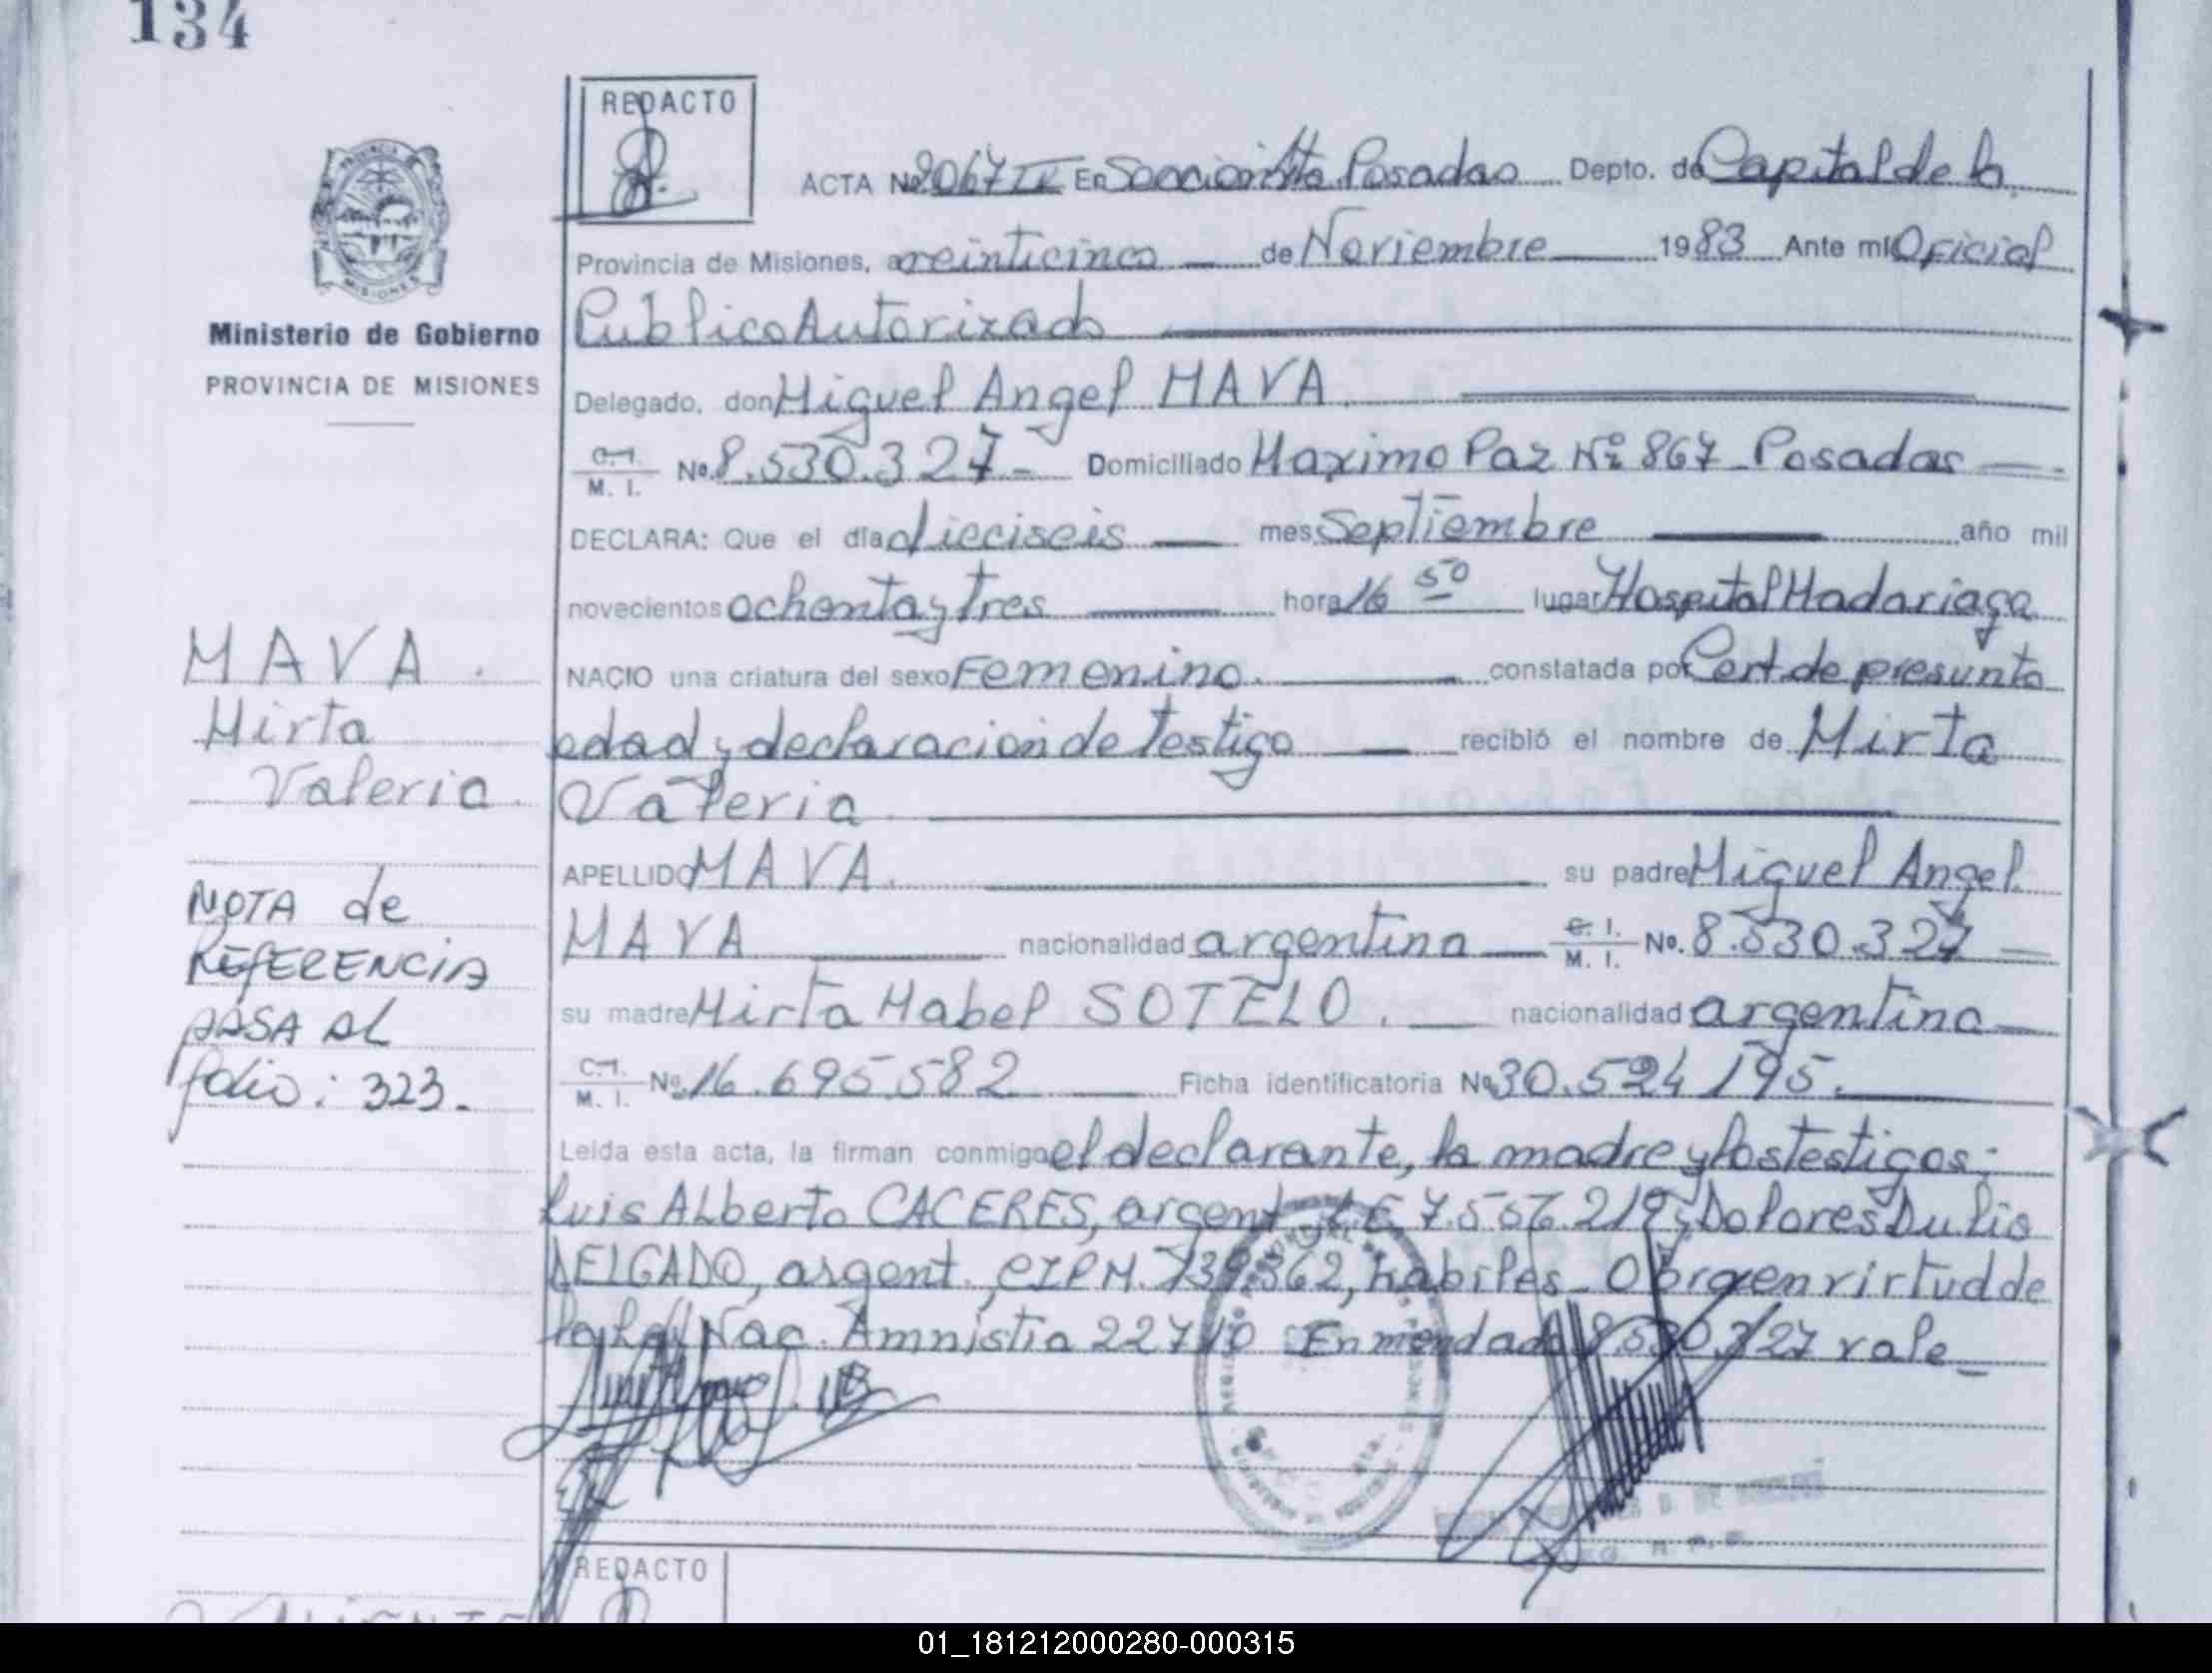 134
REDACTO
ACTA No 2067 IV En Sección 5ta Posadas Depto. de Capital de la
Provincia de Misiones, a veinticinco de Noviembre 1983 Ante mi Oficial
Publico Autorizado
Ministerio de Gobierno
PROVINCIA DE MISIONES
Delegado, don Miguel Angel MAVA.
C.I. M. I. No. 8.530.327 Domiciliado Maximo Paz Nº 867 Posadas
DECLARA: Que el día dieciseis mes Septiembre año mil
novecientos ochenta y tres hora 16 50 lugar Hospital Madariaga
MAVA.
Mirta
Valeria.
NACIO una criatura del sexo Femenino. constatada por Cert. de presunta
edad y declaracion de testigo recibió el nombre de Mirta
Valeria
APELLIDO MAVA. su padre Miguel Angel
MAVA nacionalidad argentina C. I. M. I. No. 8.530.327
NOTA de
REFERENCIA
PASA AL
folio: 323.
su madre Mirta Mabel SOTELO. nacionalidad argentina
C.I. M. I. No. 16.695.582 Ficha identificatoria No 30.524.195.
Leida esta acta, la firman conmigo el declarante, la madre y los testigos:
Luis ALberto CACERES, argent. L.E 7.556.219 y Dolores Dulio
DELGADO, argent., CIPM. 739.362, habiles_ Obra en virtud de
la Ley Nac. Amnistia 22710 Enmendado 8.530.327 vale_
REDACTO
01_181212000280-000315